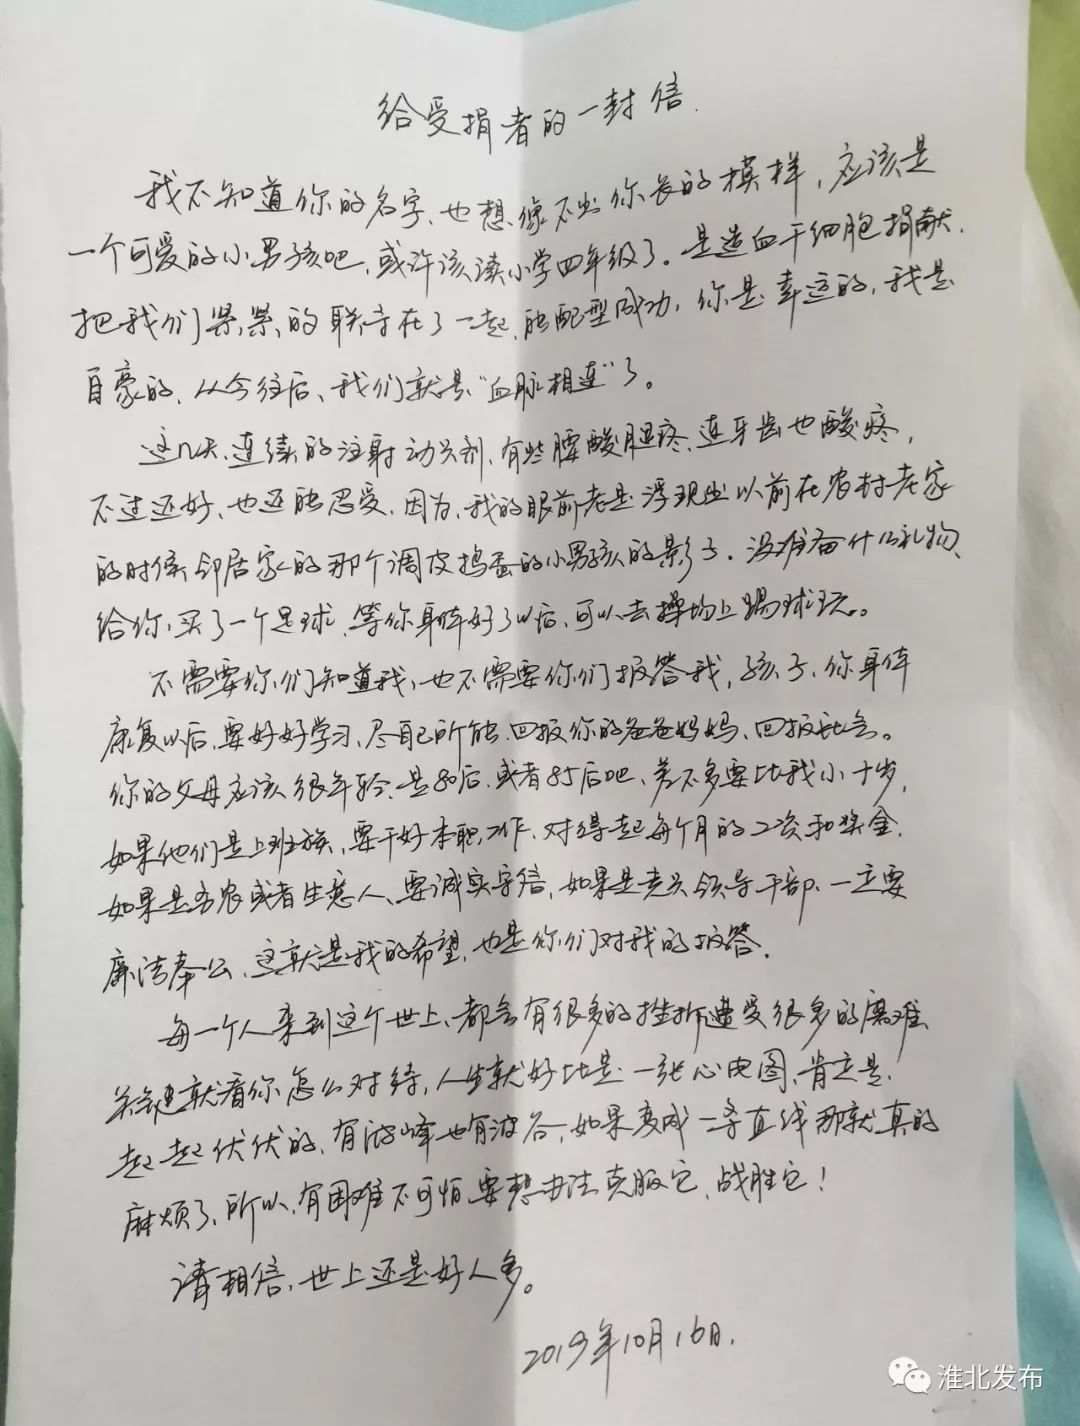 给受捐者的一封信.
我不知道你的名字、也想像不出你长的模样，应该是
一个可爱的小男孩吧，或许该读小学四年级了。是造血干细胞捐献，
把我们紧紧的联系在了一起，能配型成功，你是幸运的，我是
自豪的，从今往后、我们就是“血脉相连”了。
这几天连续的注射动员剂，有些腰酸腿疼、连牙齿也酸疼，
不过还好，也还能忍受，因为，我的眼前老是浮现出以前在农村老家
的时候邻居家的那个调皮捣蛋的小男孩的影子。没准备什么礼物、
给你买了一个足球，等你身体好了以后，可以去操场上踢球玩。
不需要你们知道我，也不需要你们报答我，孩子，你身体
康复以后，要好好学习，尽自己所能，回报你的爸爸妈妈，回报社会。
你的父母应该很年轻，是80后，或者85后吧，差不多要比我小十岁，
如果他们是上班族，要干好本职工作，对得起每个月的工资和奖金，
如果是务农或者生意人、要诚实守信，如果是党员领导干部，一定要
廉洁奉公，这就是我的希望，也是你们对我的报答。
每一个人来到这个世上、都会有很多的挫折遭受很多的磨难
关键就看你怎么对待，人生就好比是一张心电图，肯定是
起起伏伏的，有波峰也有波谷，如果变成一条直线那就真的
麻烦了，所以，有困难不可怕要想办法克服它，战胜它！
请相信，世上还是好人多。
2019年10月16日.
淮北发布